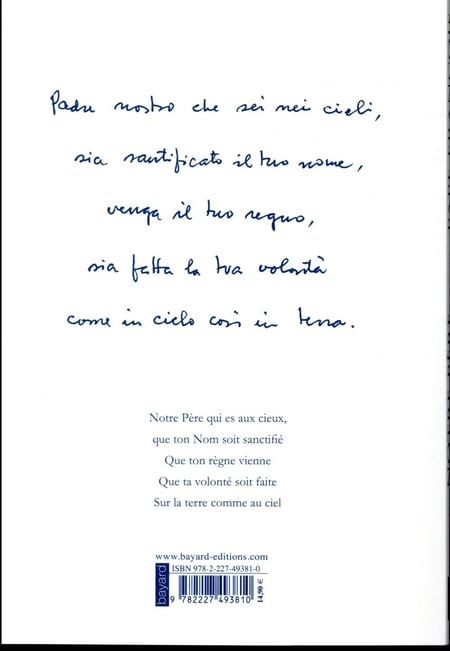 Padre nostro che sei nei cieli,
sia santificato il tuo nome,
venga il tuo regno,
sia fatta la tua volontà
come in cielo così in terra.
Notre Père qui es aux cieux,
que ton Nom soit sanctifié
Que ton règne vienne
Que ta volonté soit faite
Sur la terre comme au ciel
www.bayard-editions.com
ISBN 978-2-227-49381-0
bayard
9 782227 493810
14,90 €